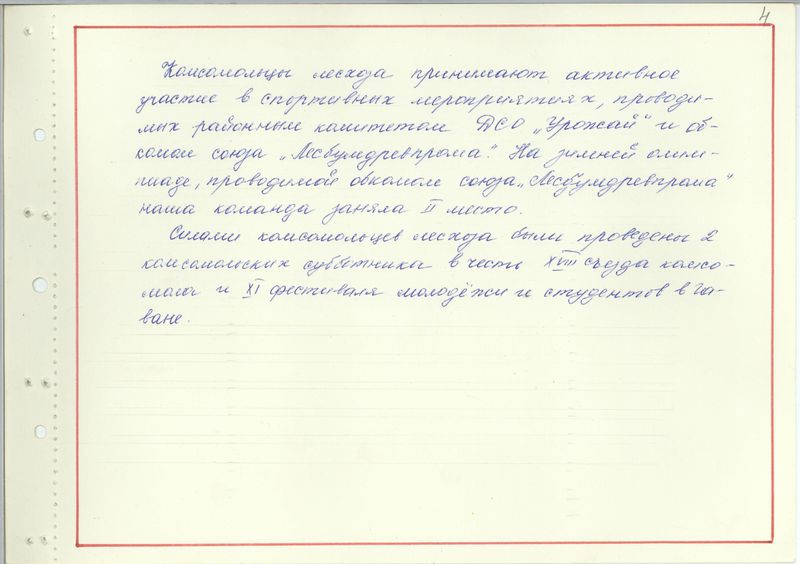 4
Комсомольцы лесхоза принимают активное
участие в спортивных мероприятиях, проводи-
мых районным комитетом ДСО „Урожай" и об-
комом союза „Лесбумдревпрома". На зимней олим-
пиаде, проводимой обкомом союза „Лесбумдревпрома"
наша команда заняла II место.
Силами комсомольцев лесхоза были проведены 2
комсомольских субботника в честь XVIII съезда комсо-
мола и XI фестиваля молодёжи и студентов в Га-
ване.